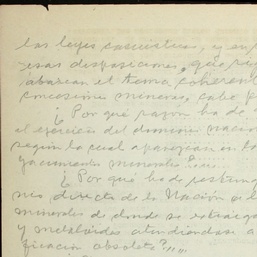 las leyes casuísticas, y en
esas disposiciones, que
abarcan el tema coherent
concesiones mineras, cabe
¿Por qué razon ha de
el ejercicio del dominio nacio
según la cual aparezcan en lo
yacimientos minerales?...
¿Por qué ha de restring
nio directo de la Nación a l
minerales de donde se extraiga
y metaloides atendiéndose a
ficación absoluta?"""